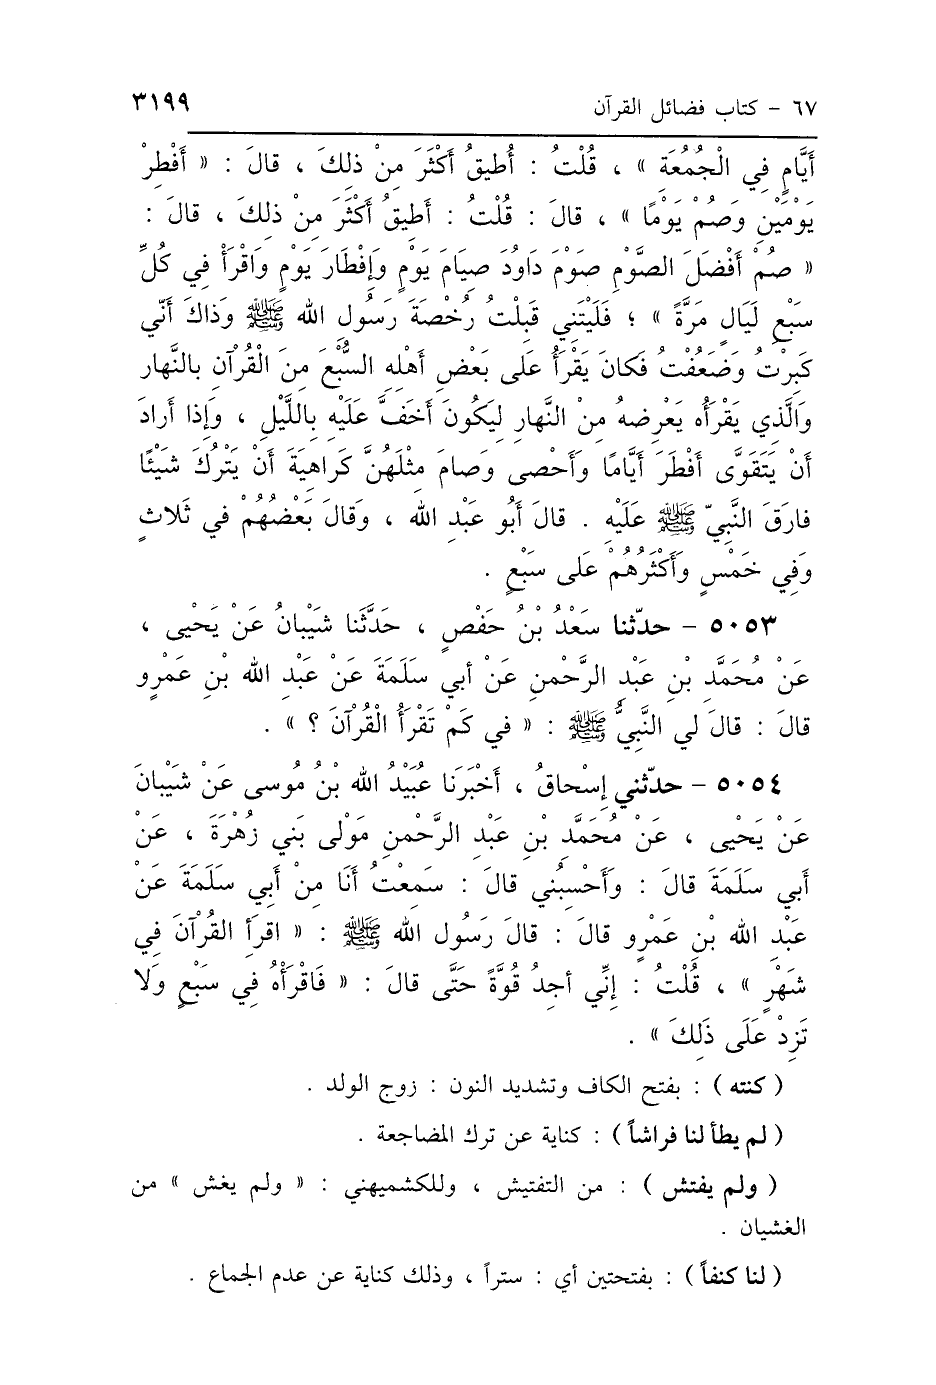 ٦٧ - كتاب فضائل القرآن ٣١٩٩
أَيَّامٍ فِي الْجُمُعَةِ » ، قُلْتُ : أُطِيقُ أَكْثَرَ مِنْ ذلِكَ ، قالَ : « أَفْطِرْ
يَوْمَيْنِ وَصُمْ يَوْمًا » ، قالَ : قُلْتُ : أُطِيقُ أَكْثَرَ مِنْ ذلِكَ ، قالَ :
« صُمْ أَفْضَلَ الصَّوْمِ صَوْمَ دَاوُدَ صِيَامَ يَوْمٍ وَإِفْطَارَ يَوْمٍ وَاقْرَأْ فِي كُلِّ
سَبْعِ لَيَالٍ مَرَّةً » ؛ فَلَيْتَنِي قَبِلْتُ رُخْصَةَ رَسُولِ الله ﷺ وَذاكَ أَنِّي
كَبِرْتُ وَضَعُفْتُ فَكانَ يَقْرَأُ عَلى بَعْضِ أَهْلِهِ السُّبْعَ مِنَ الْقُرْآنِ بالنَّهارِ
وَالَّذِي يَقْرَأُه يَعْرِضهُ مِنْ النَّهارِ لِيَكُونَ أَخَفَّ عَلَيْهِ بِاللَّيْلِ ، وَإِذا أَرادَ
أَنْ يَتَقَوَّى أَفْطَرَ أَيَّامًا وَأَحْصى وَصامَ مِثْلَهُنَّ كَراهِيَةَ أَنْ يَتْرُكَ شَيْئًا
فارَقَ النَّبِيّ ﷺ عَلَيْهِ . قالَ أَبُو عَبْدِ الله ، وَقالَ بَعْضُهُمْ في ثَلاثٍ
وَفِي خَمْسٍ وَأَكْثَرُهُمْ عَلى سَبْعٍ .
٥٠٥٣ - حدّثنا سَعْدُ بْنُ حَفْصٍ ، حَدَّثَنا شَيْبانُ عَنْ يَحْيى ،
عَنْ مُحَمَّدِ بْنِ عَبْدِ الرَّحْمنِ عَنْ أبي سَلَمَةَ عَنْ عَبْدِ الله بْنِ عَمْرٍو
قالَ : قالَ لي النَّبِيُّ ﷺ : « في كَمْ تَقْرَأُ الْقُرْآنَ ؟ » .
٥٠٥٤ - حدّثني إِسْحاقُ ، أَخْبَرَنا عُبَيْدُ الله بْنُ مُوسى عَنْ شَيْبانَ
عَنْ يَحْيى ، عَنْ مُحَمَّدِ بْنِ عَبْدِ الرَّحْمنِ مَوْلى بَني زُهْرَةَ ، عَنْ
أَبي سَلَمَةَ قالَ : وَأَحْسِبُني قالَ : سَمِعْتُ أَنا مِنْ أَبي سَلَمَةَ عَنْ
عَبْدِ الله بْنِ عَمْرٍو قالَ : قالَ رَسُولُ الله ﷺ : « اقرَأ القُرْآنَ فِي
شَهْرٍ » ، قُلْتُ : إِنِّي أجدُ قُوَّةً حَتَّى قالَ : « فَاقْرَأْهُ فِي سَبْعٍ وَلَا
تَزِدْ عَلَى ذَلِكَ » .
( كنته ) : بفتح الكاف وتشديد النون : زوج الولد .
( لم يطأ لنا فراشاً ) : كناية عن ترك المضاجعة .
( ولم يفتش ) : من التفتيش ، وللكشميهني : « ولم يغش » من
الغشيان .
( لنا كنفاً ) : بفتحتين أي : ستراً ، وذلك كناية عن عدم الجماع .